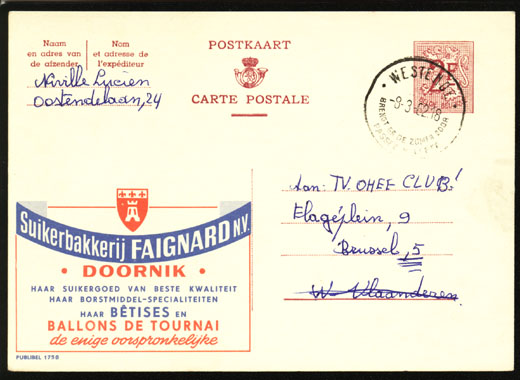 Naam
en adres van
de afzender
Nom
et adresse de
l'expéditeur
Niville Lucien
Oostendelaan, 24
POSTKAART
CARTE POSTALE
2F
WESTENDE
-8-3-62.18
BRENGT DE ZOMER DOOR
Aan: TV. OHEE CLUB!
Flageplein, 9
Brussel, 5
W. Vlaanderen
Suikerbakkerij FAIGNARD N.V.
• DOORNIK •
HAAR SUIKERGOED VAN BESTE KWALITEIT
HAAR BORSTMIDDEL-SPECIALITEITEN
HAAR BÊTISES EN
BALLONS DE TOURNAI
de enige oorspronkelijke
PUBLIBEL 1750